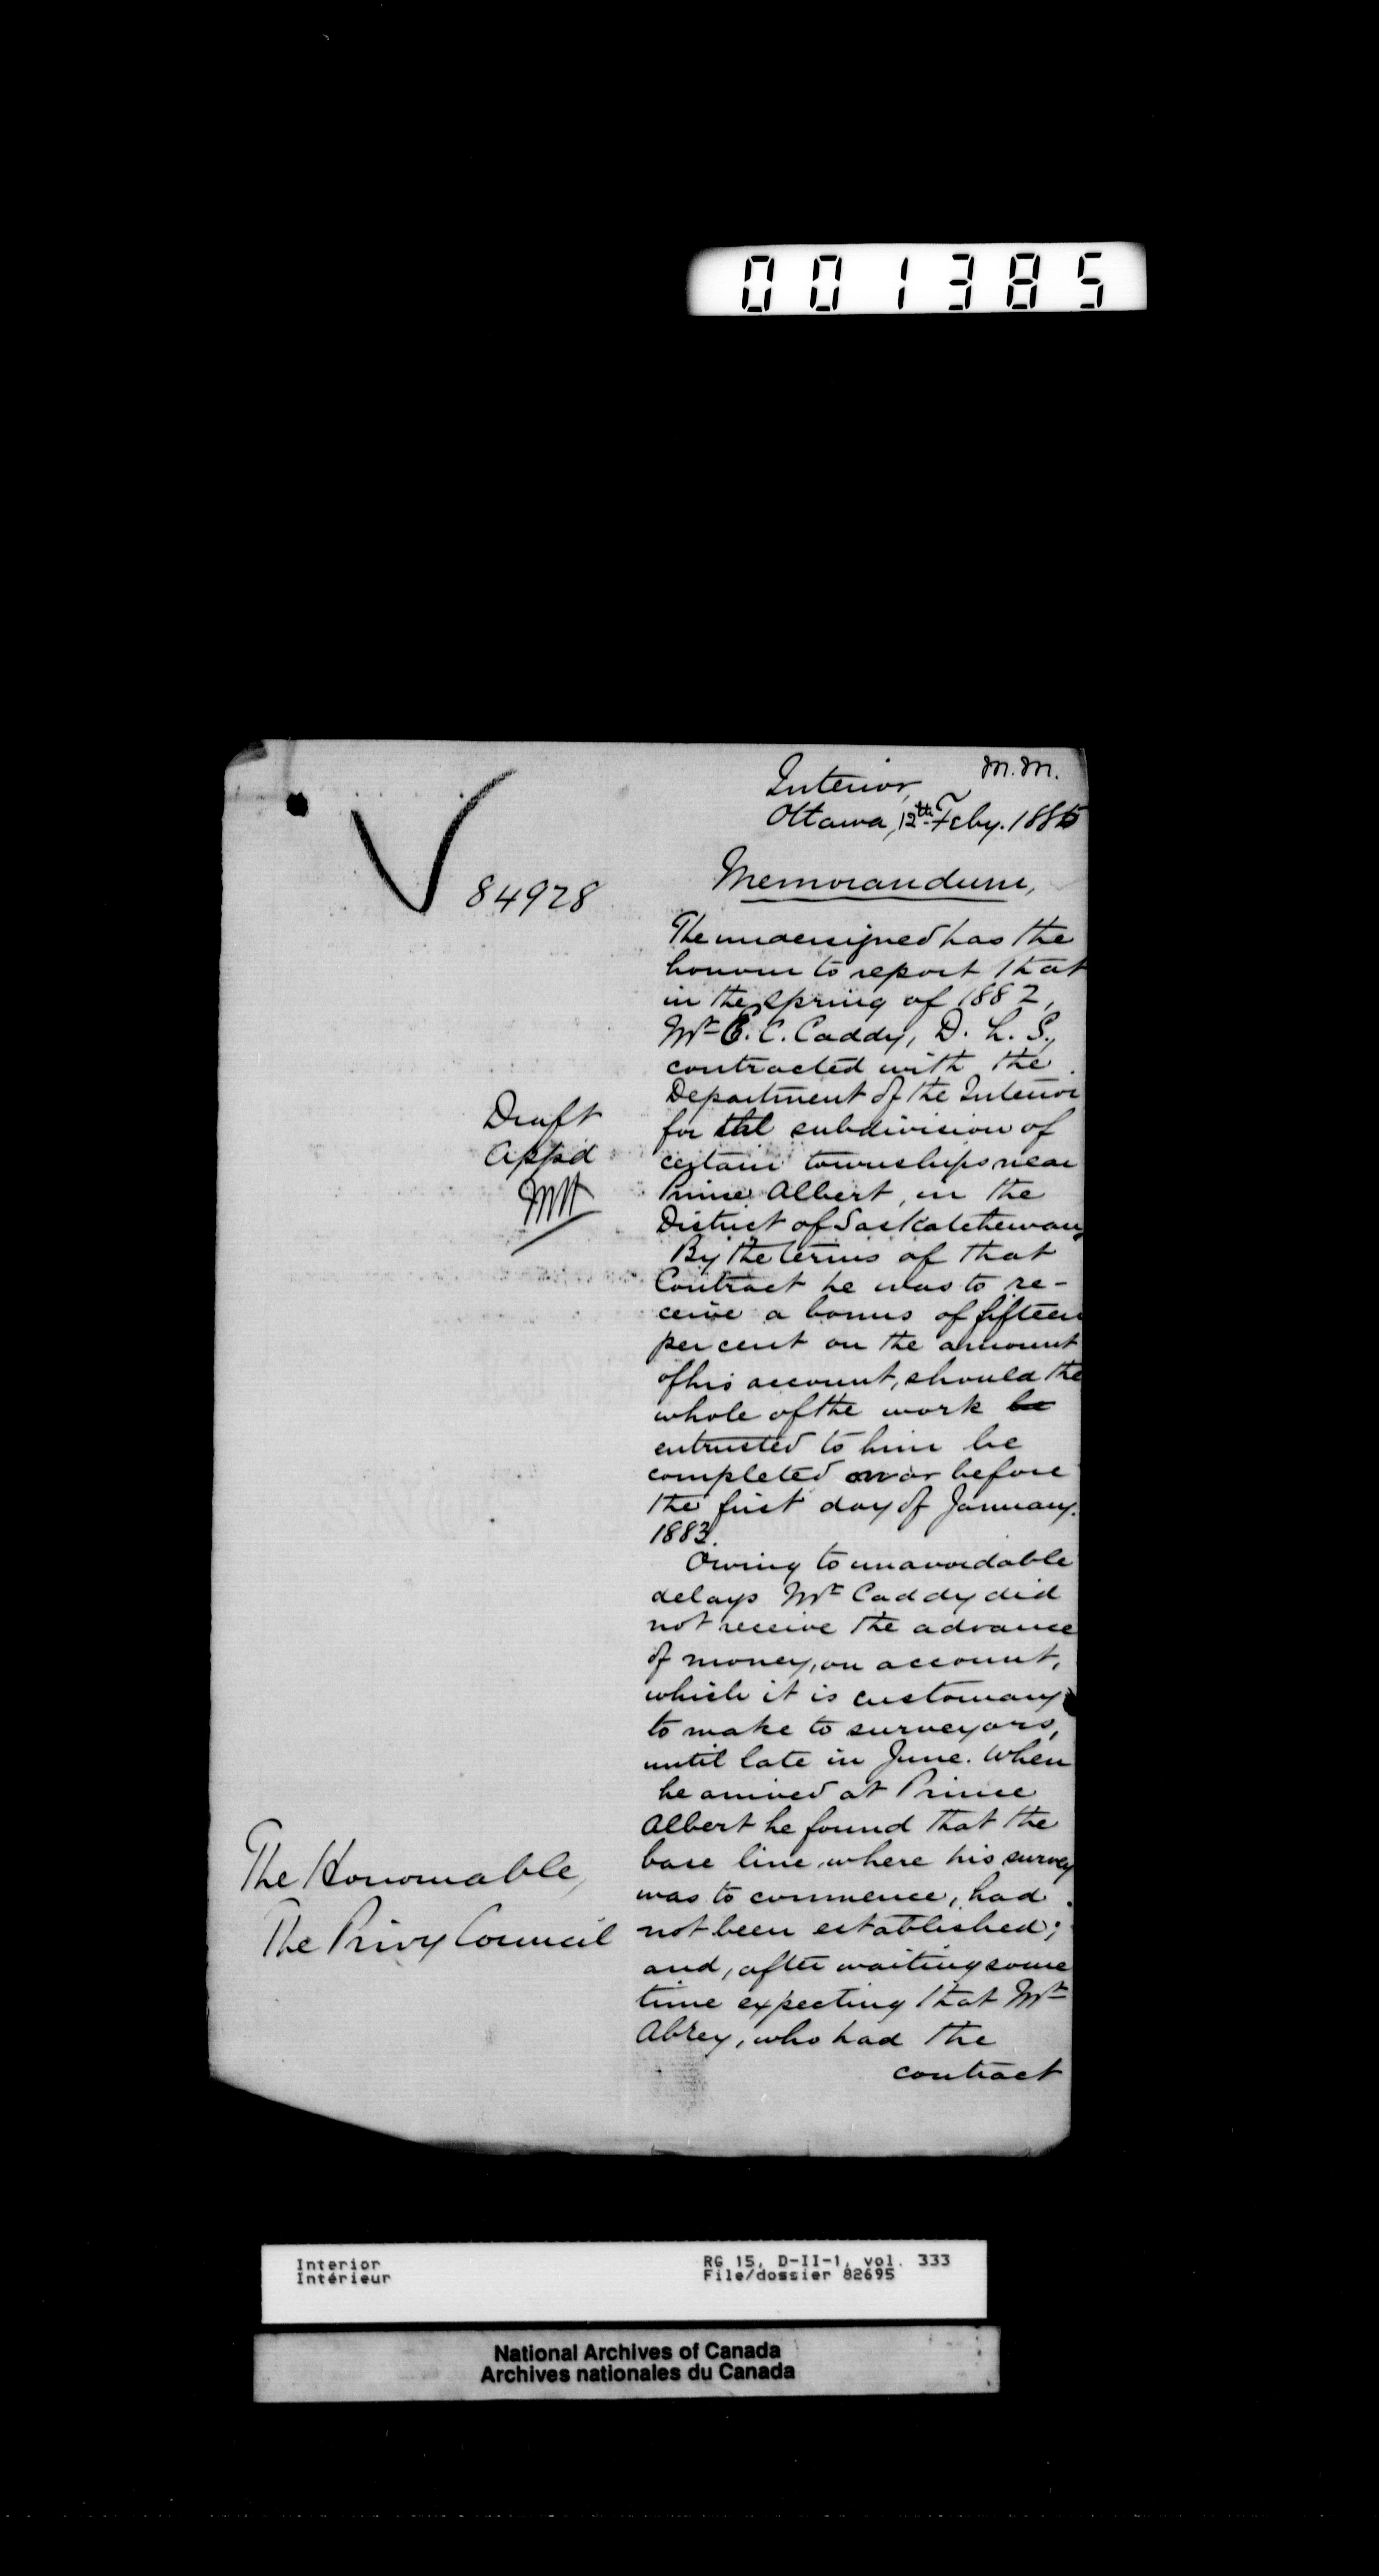 001385
M.M.
Interior,
Ottawa, 12th Feby. 1885
84978
Memorandum,
The undersigned has the
honour to report that
in the Spring of 1882,
Mr C. C. Caddy, D. L. S.,
contracted with the
Department of the Interior
for the subdivision of
certain townships near
Prince Albert, in the
District of Saskatchewan,
By the terms of that
Contract he was to re-
ceive a bonus of fifteen
per cent on the amount
of his account, should the
whole of the work be
entrusted to him be
completed on or before
the first day of January.
1883.
Owing to unavoidable
delays Mr Caddy did
not receive the advance
of money, on account,
which it is customary
to make to surveyors,
until late in June. When
he arrived at Prince
Albert he found that the
base line, where his survey
was to commence, had
not been established;
and, after waiting some
time expecting that Mr
Abrey, who had the
contract
Draft
Appd
The Honourable,
The Privy Council
Interior
Intérieur
RG 15, D-II-1, vol. 333
File/dossier 82695
National Archives of Canada
Archives nationales du Canada